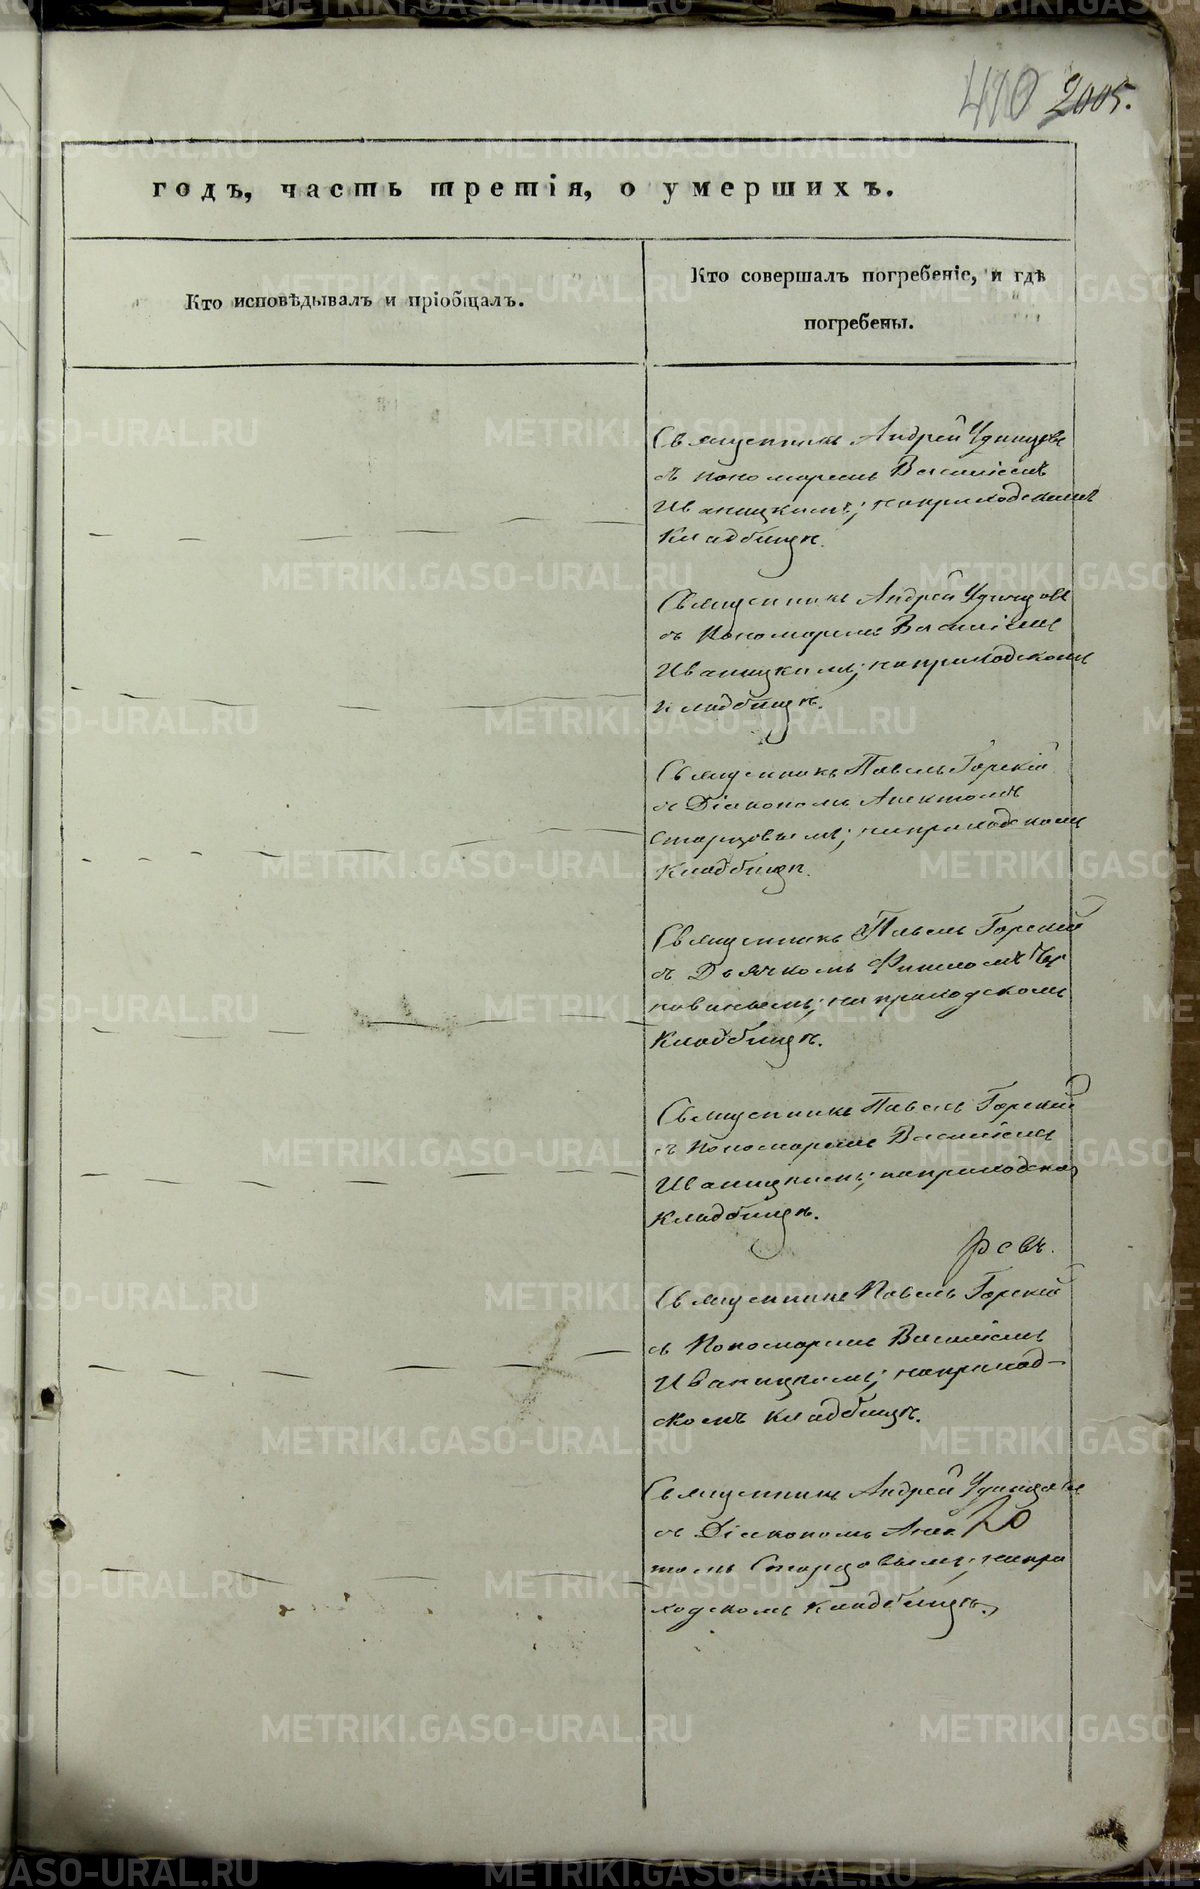 410 2005.
годъ, часть третія, о умершихъ.
Кто исповѣдывалъ и пріобщалъ.
Кто совершалъ погребеніе, и гдѣ
погребены.
Священникъ Андрей Удинцовъ
съ пономаремъ Василіемъ
Иваницкимъ; на приходскомъ
Кладбищѣ.
Священникъ Андрей Удинцовъ
съ Пономаремъ Василіемъ
Иваницкимъ; на приходскомъ
кладбищѣ.
Священникъ Павелъ Горскій
съ Діакономъ
Старцовымъ; на приходскомъ
Кладбищѣ.
Священникъ Павелъ Горскій
съ Дьячкомъ
на приходскомъ
Кладбищѣ.
Священникъ Павелъ Горскій
съ Пономаремъ Василіемъ
Иваницкимъ; на приходском
Кладбищѣ.
Священникъ Павелъ Горскій
съ Пономаремъ Василіемъ
Иваницкимъ; на приход-
скомъ кладбищѣ.
Священникъ Андрей Удинцовъ
съ Діакономъ
Старцовымъ; на при
ходскомъ кладбищѣ.
METRIKI.GASO-URAL.RU